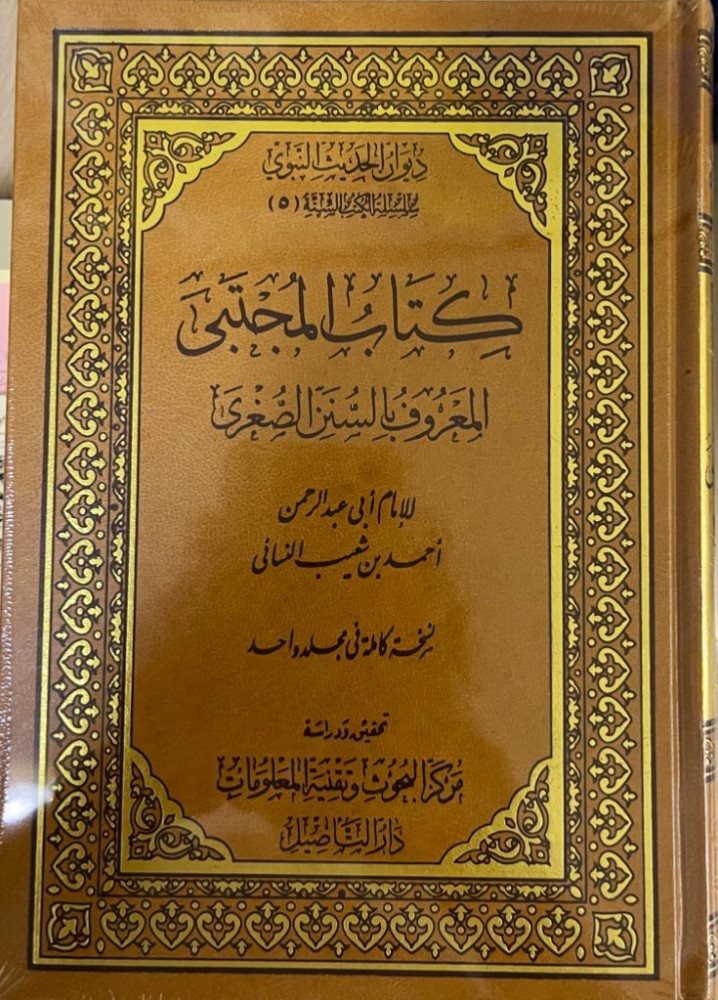 ديوان الحديث النبوي
سلسلة الكتب الستة (٥)
كِتَابُ المُجْتَبَى
المَعْرُوفُ بِالسُّنَنِ الصُّغْرَى
للإمام أبي عبد الرحمن
أحمد بن شعيب النسائي
نسخة كاملة في مجلد واحد
تحقيق ودراسة
مركز البحوث وتقنية المعلومات
دار التأصيل